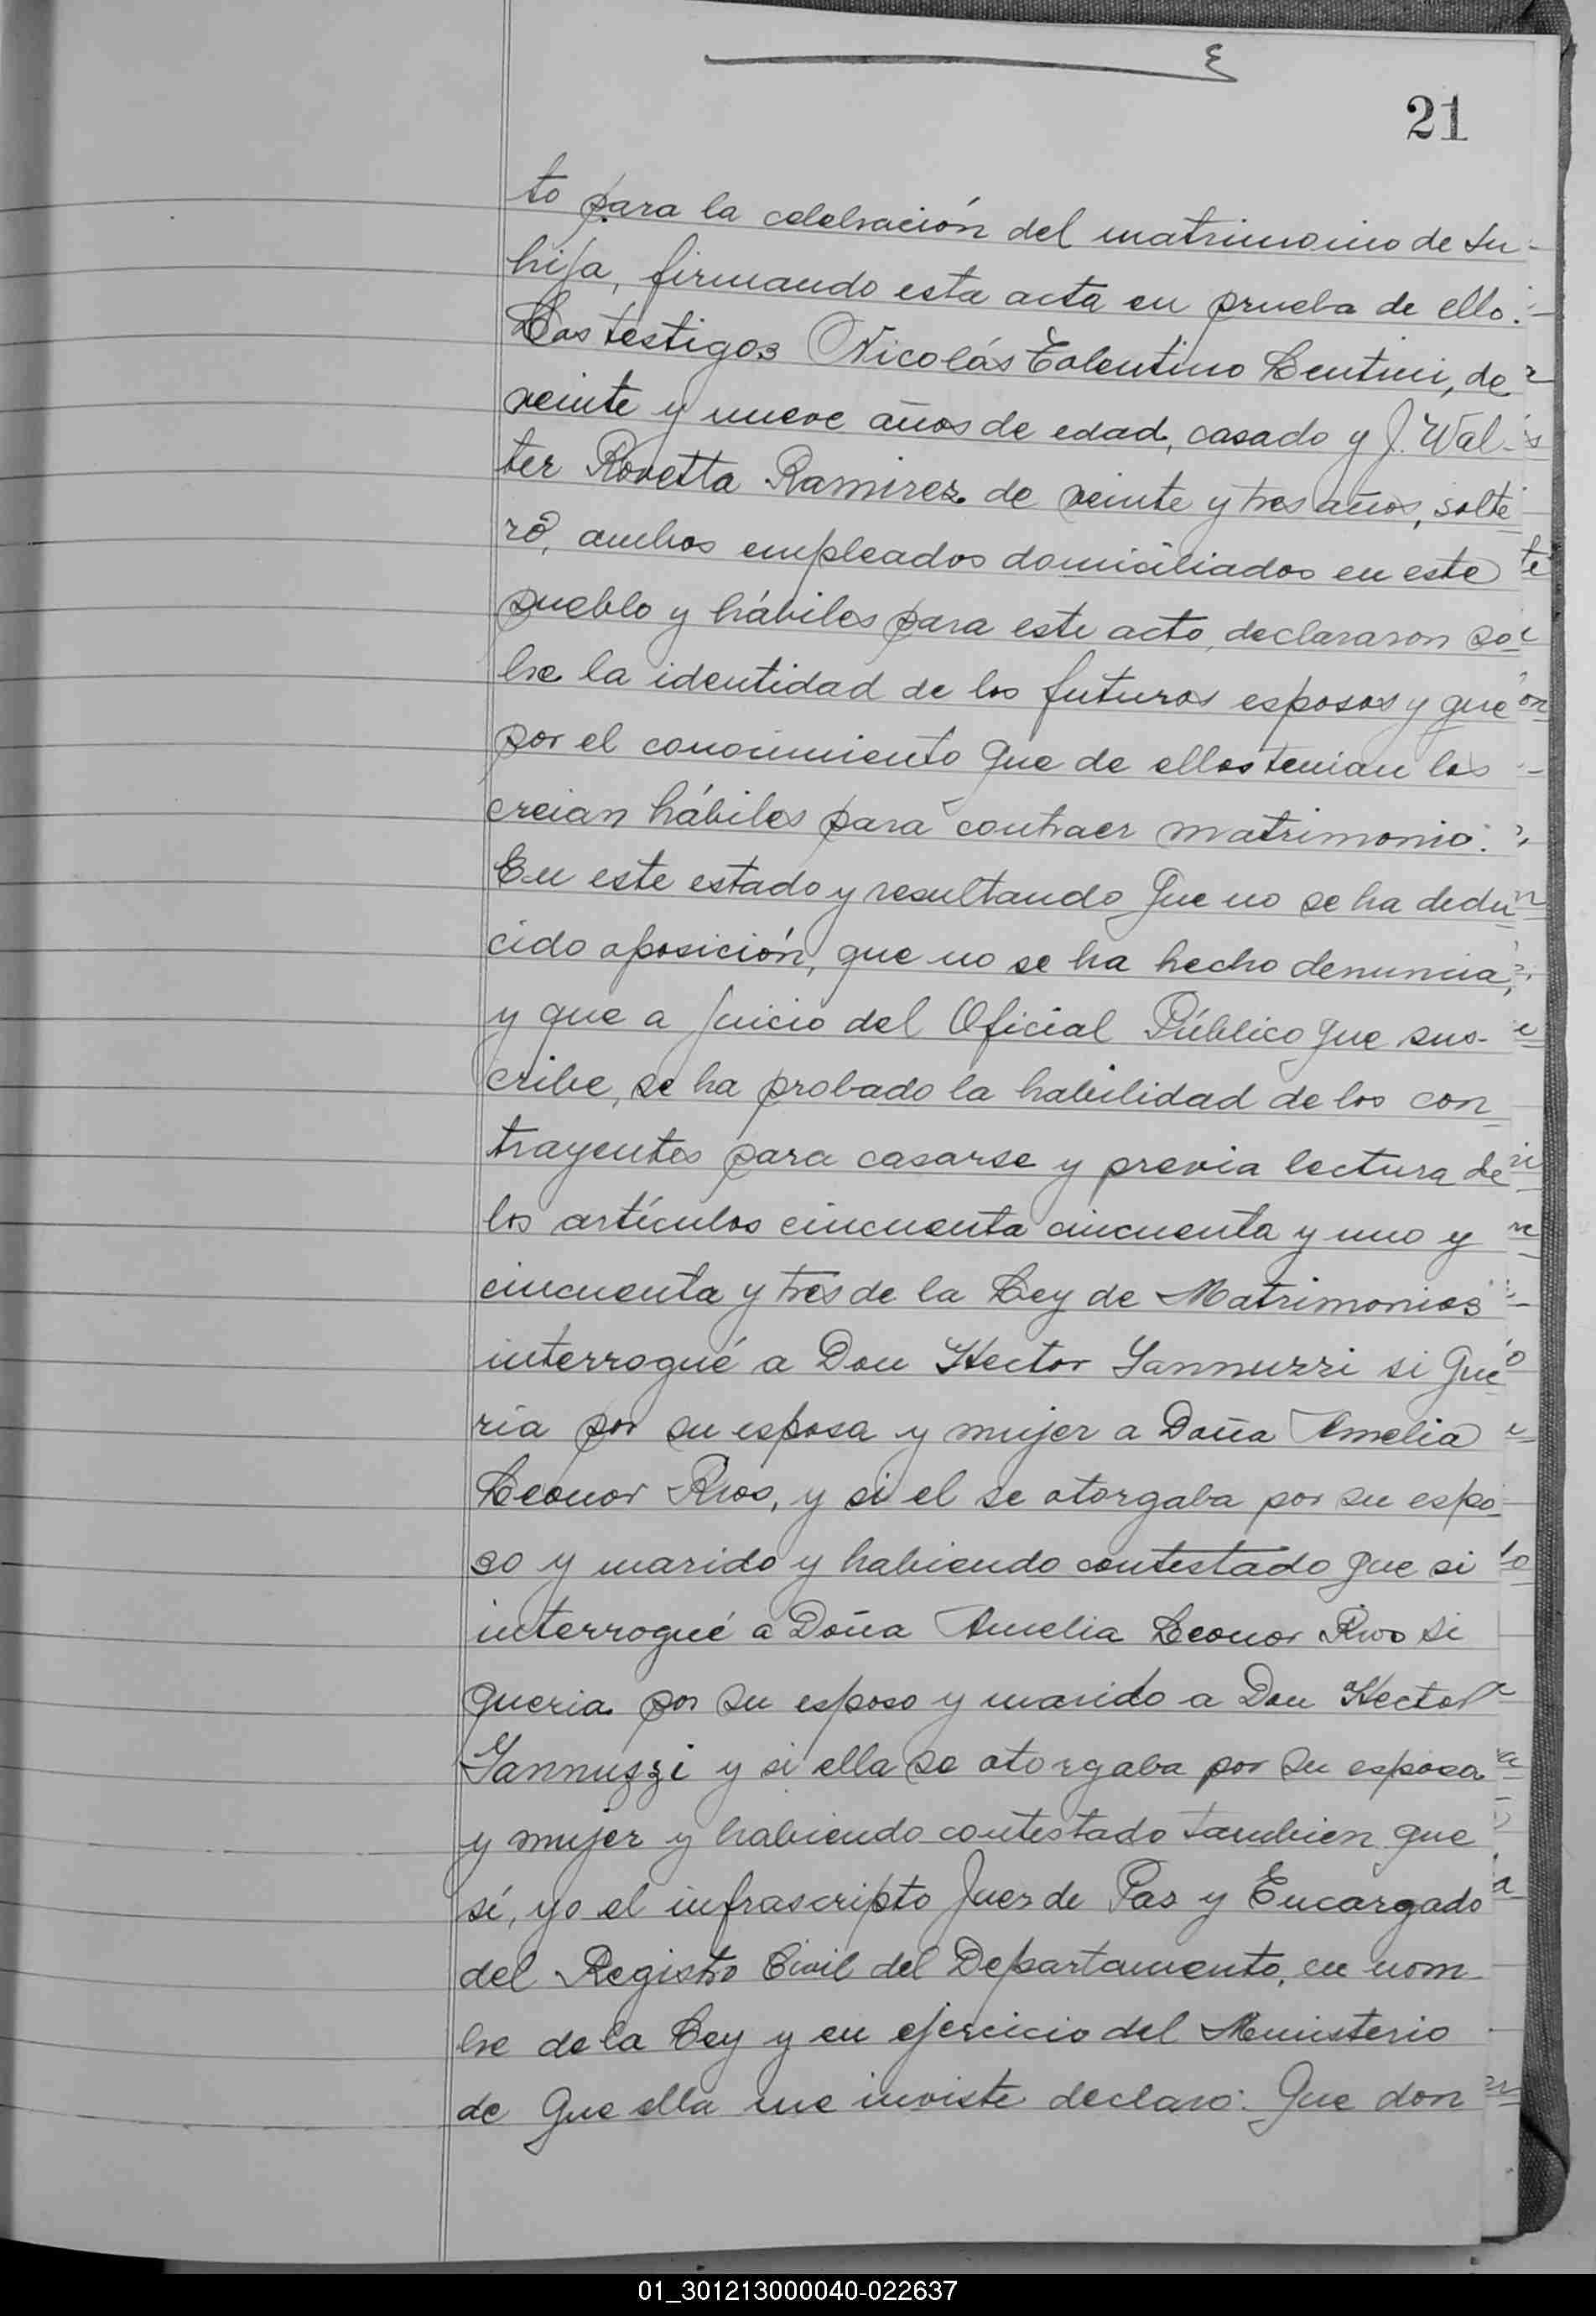 21
to para la celebración del matrimonio de su
hija, firmando esta acta en prueba de ello.
Los testigos Nicolás Tolentino Lentini, de
veinte y nueve años de edad, casado y J. Wal-
ter Rovetta Ramirez de veinte y tres años, solte
ro, ambos empleados domiciliados en este
pueblo y hábiles para este acto, declararon so
bre la identidad de los futuros esposos y que
por el conocimiento que de ellos tenian los
creian hábiles para contraer matrimonio.
En este estado y resultando que no se ha dedu
cido oposición, que no se ha hecho denuncia,
y que a juicio del Oficial Público que sus-
cribe, se ha probado la habilidad de los con
trayentes para casarse y previa lectura de
los artículos cincuenta cincuenta y uno y
cincuenta y tres de la Ley de Matrimonios
interrogué a Don Hector Iannuzzi si que
ría por su esposa y mujer a Doña Amelia
Leonor Rios, y si el se otorgaba por su espo
so y marido y habiendo contestado que si
interrogué a Doña Amelia Leonor Rios si
queria por su esposo y marido a Don Hector
Iannuzzi y si ella se otorgaba por su esposa
y mujer y habiendo contestado tambien que
sí, yo el infrascripto Juez de Paz y Encargado
del Registro Civil del Departamento, en nom
bre de la Ley y en ejercicio del Ministerio
de que ella me inviste declaro: Que don
01_301213000040-022637